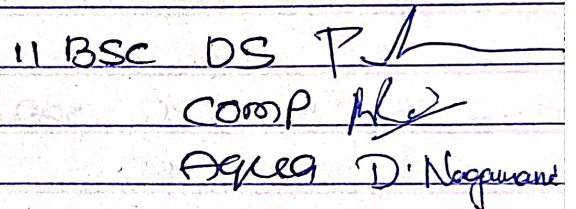 II BSC DS
COMP
Aqua D. Nagamani